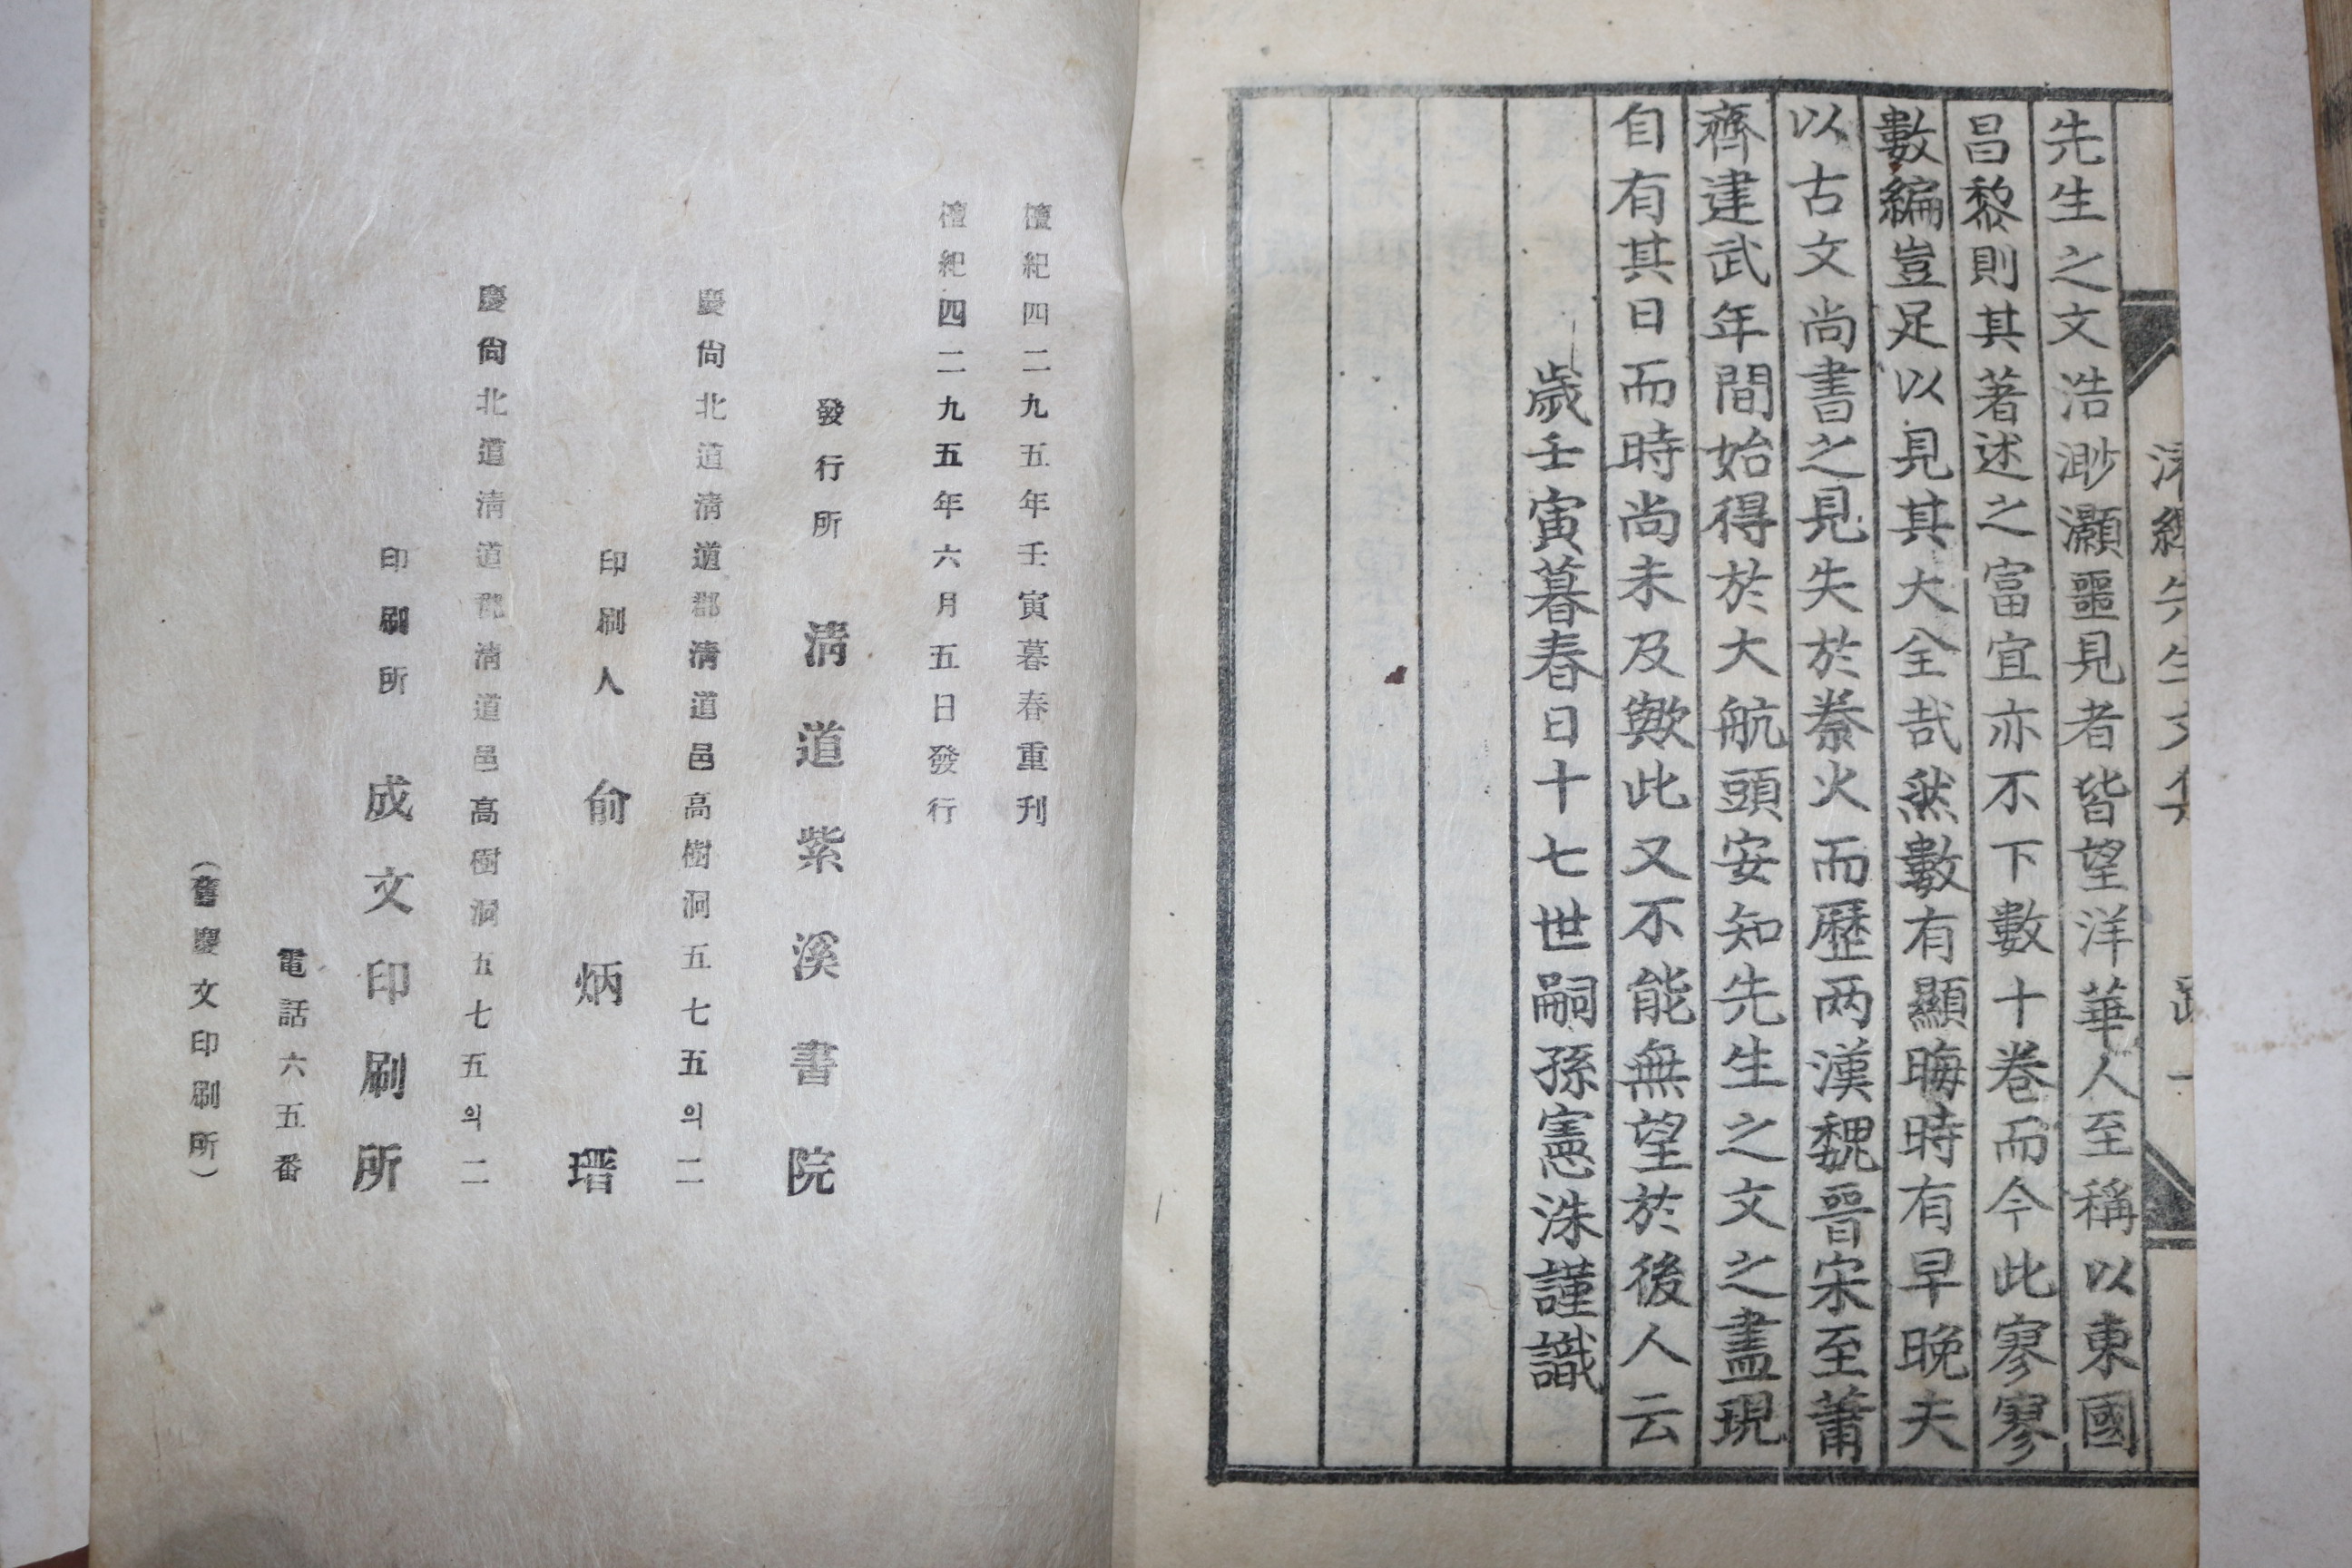 先生之文浩渺灝噩見者皆望洋華人至稱以東國
昌黎則其著述之富宜亦不下數十卷而今此寥寥
數編豈足以見其大全哉然數有顯晦時有早晩夫
以古文尙書之見失於秦火而歷两漢魏晉宋至蕭
齊建武年間始得於大航頭安知先生之文之盡現
自有其日而時尙未及歟此又不能無望於後人云
歲壬寅暮春日十七世嗣孫憲洙謹識
檀紀四二九五年壬寅暮春重刊
檀紀四二九五年六月五日發行
發行所 淸道紫溪書院
慶尙北道淸道郡淸道邑高樹洞五七五의二
印刷人 俞炳瑨
慶尙北道淸道郡淸道邑高樹洞五七五의二
印刷所 成文印刷所
電話六五番
(舊慶文印刷所)